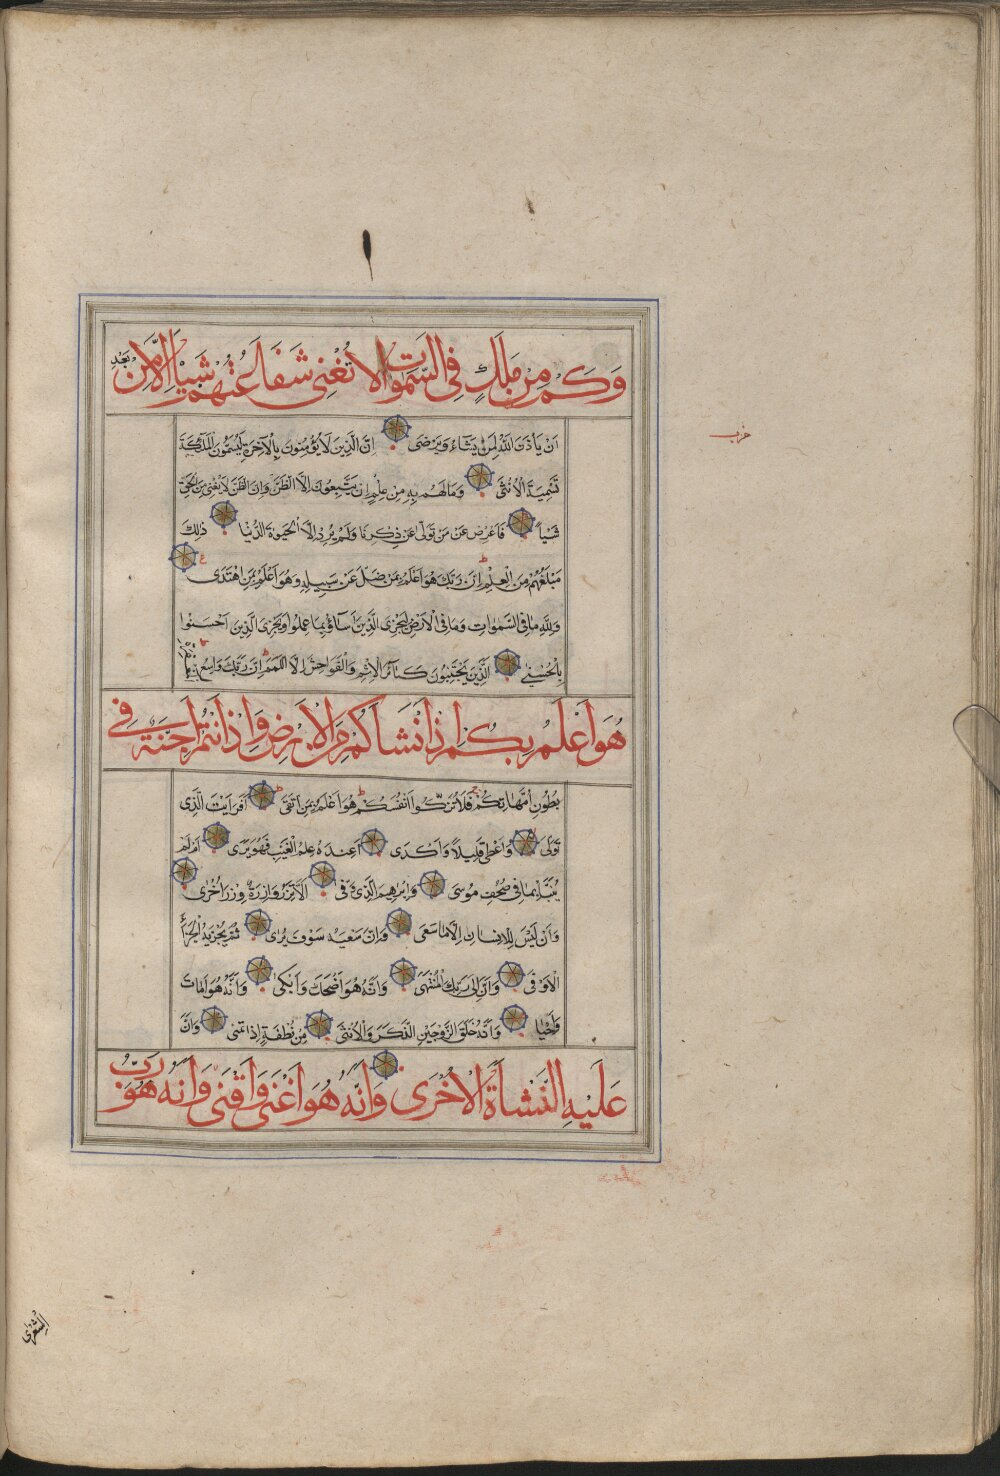 وَكَم مِن مَلَكٍ فِي السَّمَوَاتِ لَا تُغْنِي شَفَاعَتُهُمْ شَيْئًا إِلَّا مِنْ بَعْدِ
اَنْ يَأْذَنَ اللَّهُ لِمَنْ يَشَاءُ وَيَرْضَى اِنَّ الَّذِينَ لَا يُؤْمِنُونَ بِالْآخِرَةِ لَيُسَمُّونَ الْمَلَئِكَةَ
تَسْمِيَةَ الْاُنْثَى وَمَا لَهُمْ بِهِ مِنْ عِلْمٍ اِنْ يَتَّبِعُونَ اِلَّا الظَّنَّ وَاِنَّ الظَّنَّ لَا يُغْنِي مِنَ الْحَقِّ
شَيْئاً فَاَعْرِضْ عَنْ مَنْ تَوَلَّى عَنْ ذِكْرِنَا وَلَمْ يُرِدْ اِلَّا الْحَيَوةَ الدُّنْيَا ذلِكَ
مَبْلَغُهُمْ مِنَ الْعِلْمِ اِنَّ رَبَّكَ هُوَ اَعْلَمُ بِمَنْ ضَلَّ عَنْ سَبِيلِهِ وَهُوَ اَعْلَمُ بِمَنِ اهْتَدَى
وَلِلَّهِ مَا فِي السَّمَوَاتِ وَمَا فِي الْاَرْضِ لِيَجْزِيَ الَّذِينَ اَسَاؤُا بِمَا عَمِلُوا وَيَجْزِيَ الَّذِينَ اَحْسَنُوا
بِالْحُسْنَى اَلَّذِينَ يَجْتَنِبُونَ كَبَائِرَ الْاِثْمِ وَالْفَوَاحِشَ اِلَّا اللَّمَمَ اِنَّ رَبَّكَ وَاسِعُ الْمَغْفِرَةِ
هُوَ اَعْلَمُ بِكُمْ اِذْ اَنْشَاَكُمْ مِنَ الْاَرْضِ وَاِذْ اَنْتُمْ اَجِنَّةٌ فِي
بُطُونِ اُمَّهَاتِكُمْ فَلَا تُزَكُّوا اَنْفُسَكُمْ هُوَ اَعْلَمُ بِمَنِ اتَّقَى اَفَرَاَيْتَ الَّذِي
تَوَلَّى وَاَعْطَى قَلِيلاً وَاَكْدَى اَعِنْدَهُ عِلْمُ الْغَيْبِ فَهُوَ يَرَى اَمْ لَمْ
يُنَبَّأْ بِمَا فِي صُحُفِ مُوسَى وَاِبْرهِيمَ الَّذِي وَفَّى اَلَّا تَزِرُ وَازِرَةٌ وِزْرَ اُخْرَى
وَاَنْ لَيْسَ لِلْاِنْسَانِ اِلَّا مَا سَعَى وَاَنَّ سَعْيَهُ سَوْفَ يُرَى ثُمَّ يُجْزَيهُ الْجَزَاءَ
الْاَوْفَى وَاَنَّ اِلَى رَبِّكَ الْمُنْتَهَى وَاَنَّهُ هُوَ اَضْحَكَ وَاَبْكَى وَاَنَّهُ هُوَ اَمَاتَ
وَاَحْيَا وَاَنَّهُ خَلَقَ الزَّوْجَيْنِ الذَّكَرَ وَالْاُنْثَى مِنْ نُطْفَةٍ اِذَا تُمْنَى وَاَنَّ
عَلَيْهِ النَّشْاَةَ الْاُخْرَى وَاَنَّهُ هُوَ اَغْنَى وَاَقْنَى وَاَنَّهُ هُوَ رَبُّ
حزب
الشِّعْرَى